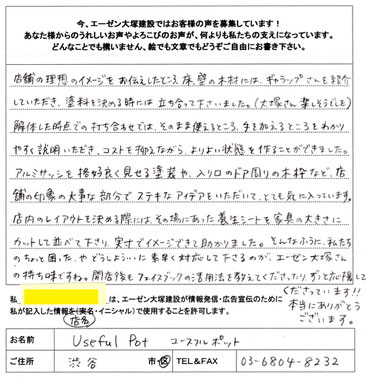 今、エーゼン大塚建設ではお客様の声を募集しています！
あなた様からのうれしいお声やよろこびのお声が、何よりも私たちの支えになっています。
どんなことでも構いません、絵でも文章でもどうぞご自由にお書き下さい。
店舗の理想のイメージをお伝えしたところ、床、壁の木材には、ギャラップさんを紹介
していただき、塗料を決める時には立ち会って下さいました。(大塚さん楽しそうでした)
解体した時点での打ち合わせでは、そのまま使えるところ、手を加えるところをわかり
やすく説明いただき、コストを抑えながら、よりよい状態を作ることができました。
アルミサッシを格好良く見せる塗装や、入り口のドア周りの木枠など、店
舗の印象の大事な部分でステキなアイデアをいただいて、とても気に入っています。
店内のレイアウトを決める際には、その場にあった養生シートを家具の大きさに
カットして並べて下さり、実寸でイメージできて助かりました。そんなふうに、私たち
のちょっと困った、やどうしよういに素早く対応して下さるのが、エーゼン大塚さん
の持ち味ですね。開店後もフェイスブックの活用法を教えてくださったり、ずっと応援して
くださっています!!
本当にありがとう
ございます。
私、は、エーゼン大塚建設が情報発信・広告宣伝のために
私が記入した情報を(実名・イニシャル)で使用することを許可します。
店名
お名前 Useful Pot ユースフルポット
ご住所 渋谷 市・区 TEL&FAX 03-6804-8232